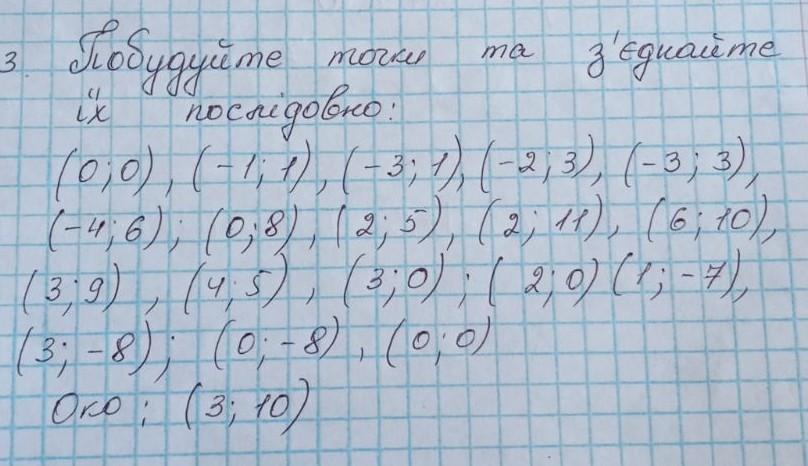 3. Побудуйте точки та з'єднайте
їх послідовно:
(0;0), (-1;1), (-3;1), (-2;3), (-3;3),
(-4;6); (0;8), (2;5), (2;11), (6;10),
(3;9), (4;5), (3;0); (2;0) (1;-7),
(3;-8); (0;-8), (0;0)
Око: (3;10)